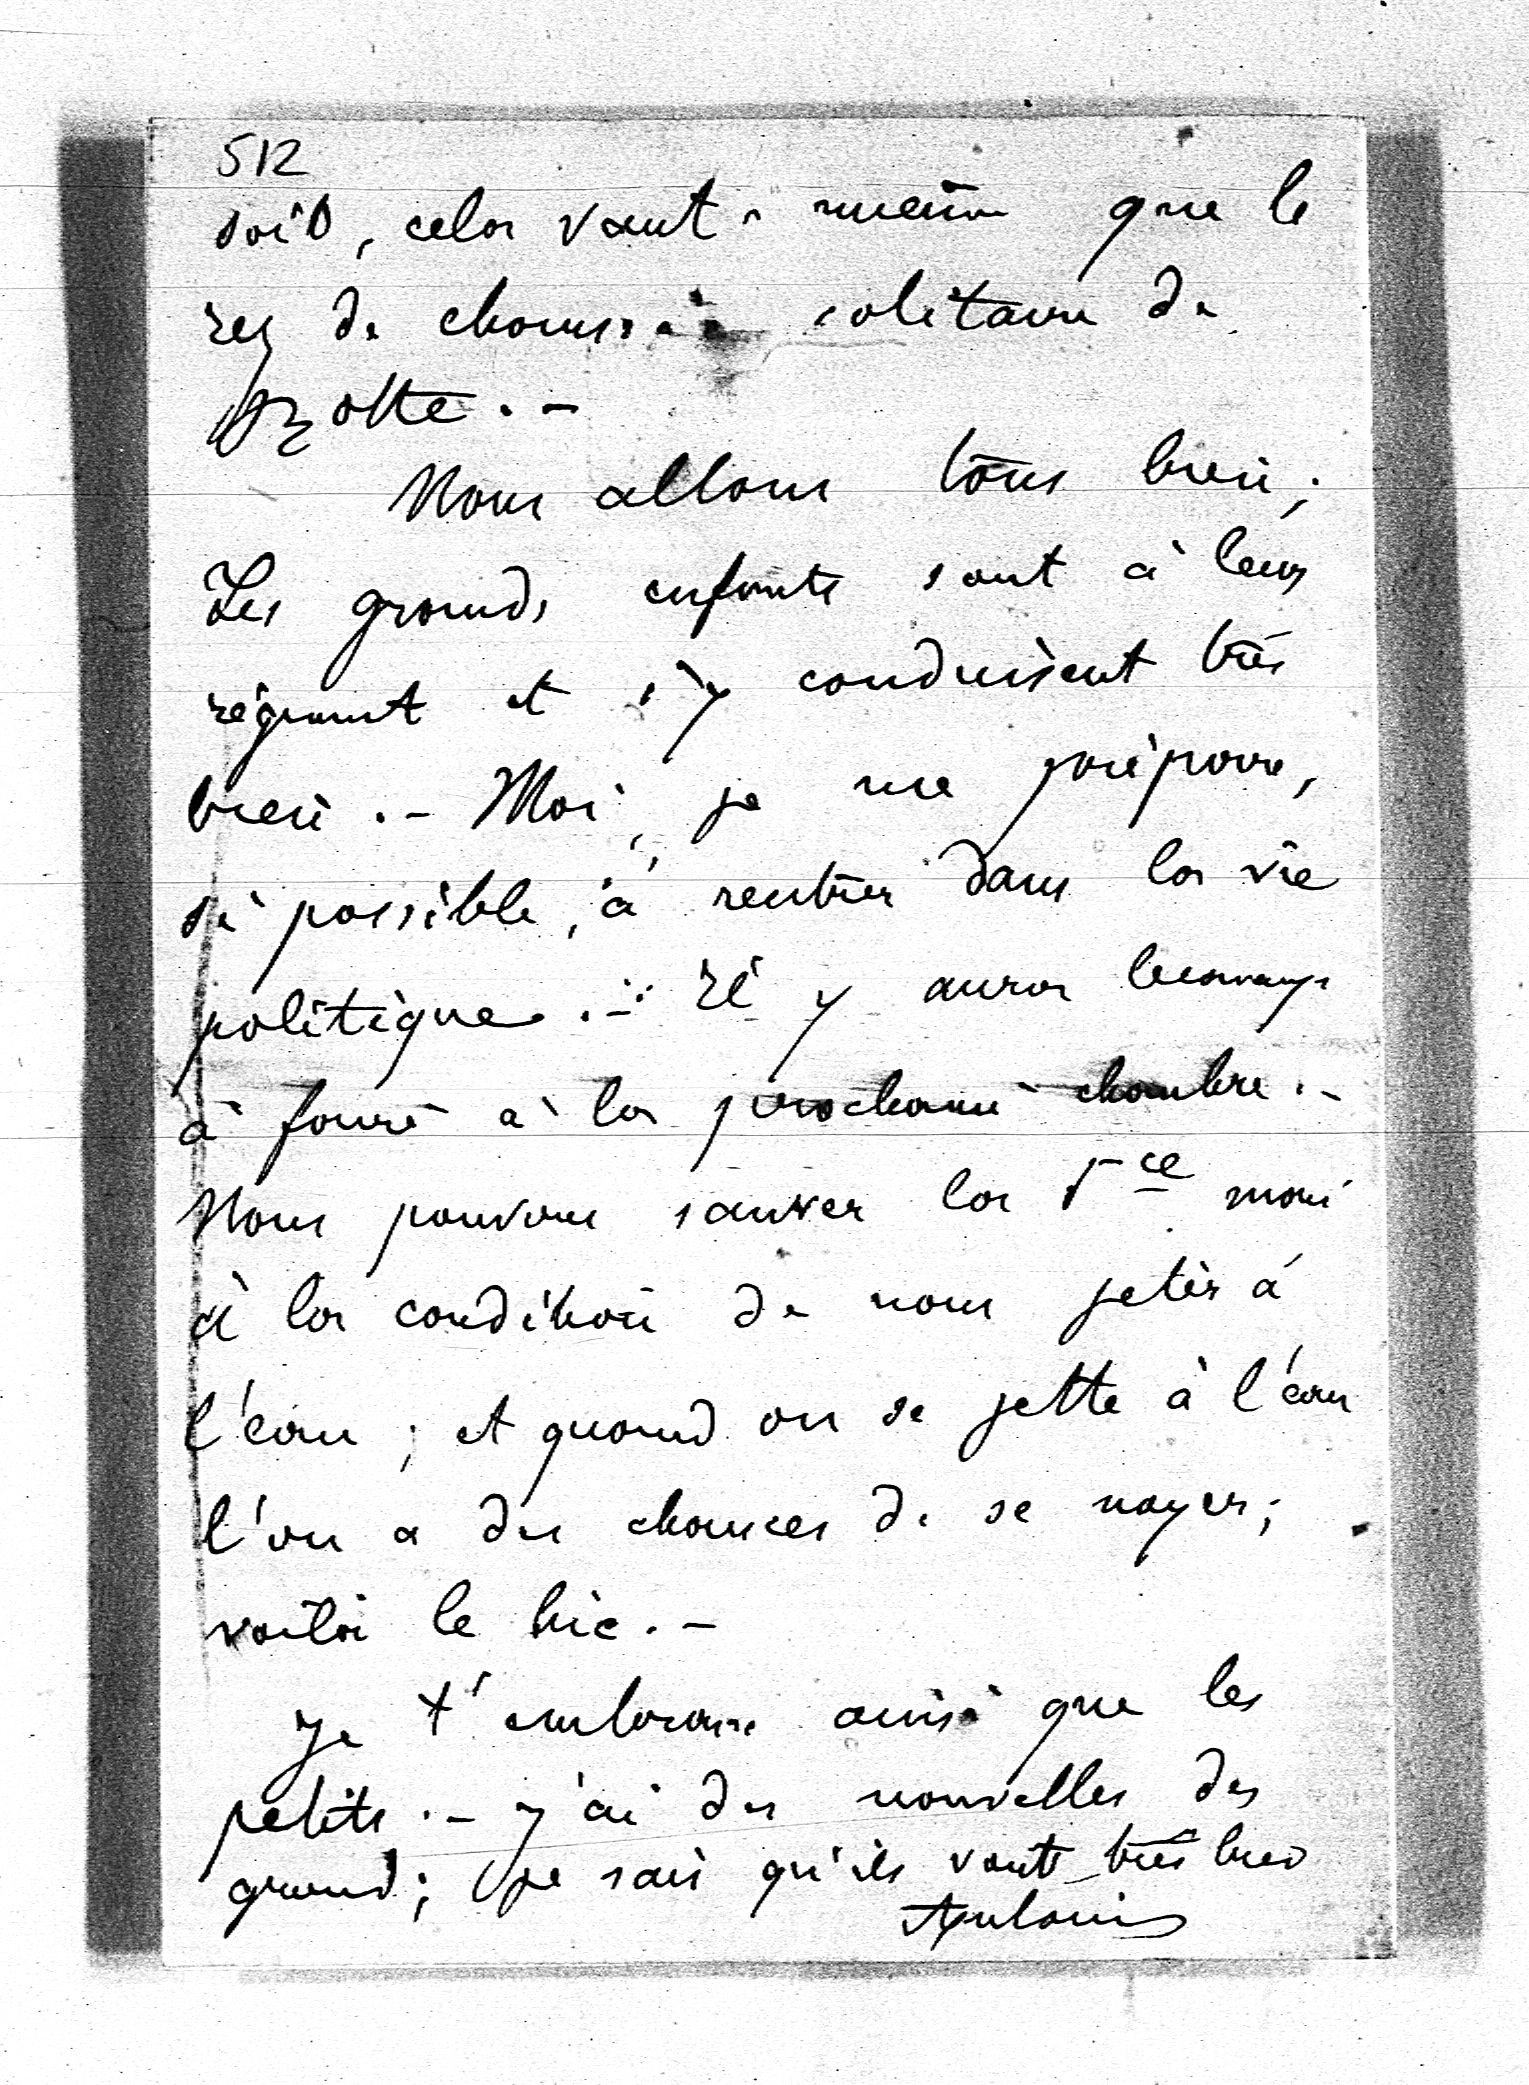 512
soit, cela vaut mieux que le
rez de chaussée solitaire de
Nous allons tous bien;
Les grands enfants sont à leur
régiment et s'y conduisent très
bien. - Moi, je me prépare,
si possible, à rentrer dans la vie
politique. - Il y aura beaucoup
à faire à la prochaine chambre. -
Nous pouvons sauver la Fce mais
à la condition de nous jeter à
l'eau; et quand on se jette à l'eau
l'on a des chances de se noyer;
voilà le hic. -
Je t'embrasse ainsi que les
petits. - J'ai des nouvelles des
grands; je sais qu'ils vont très bien
Antoine